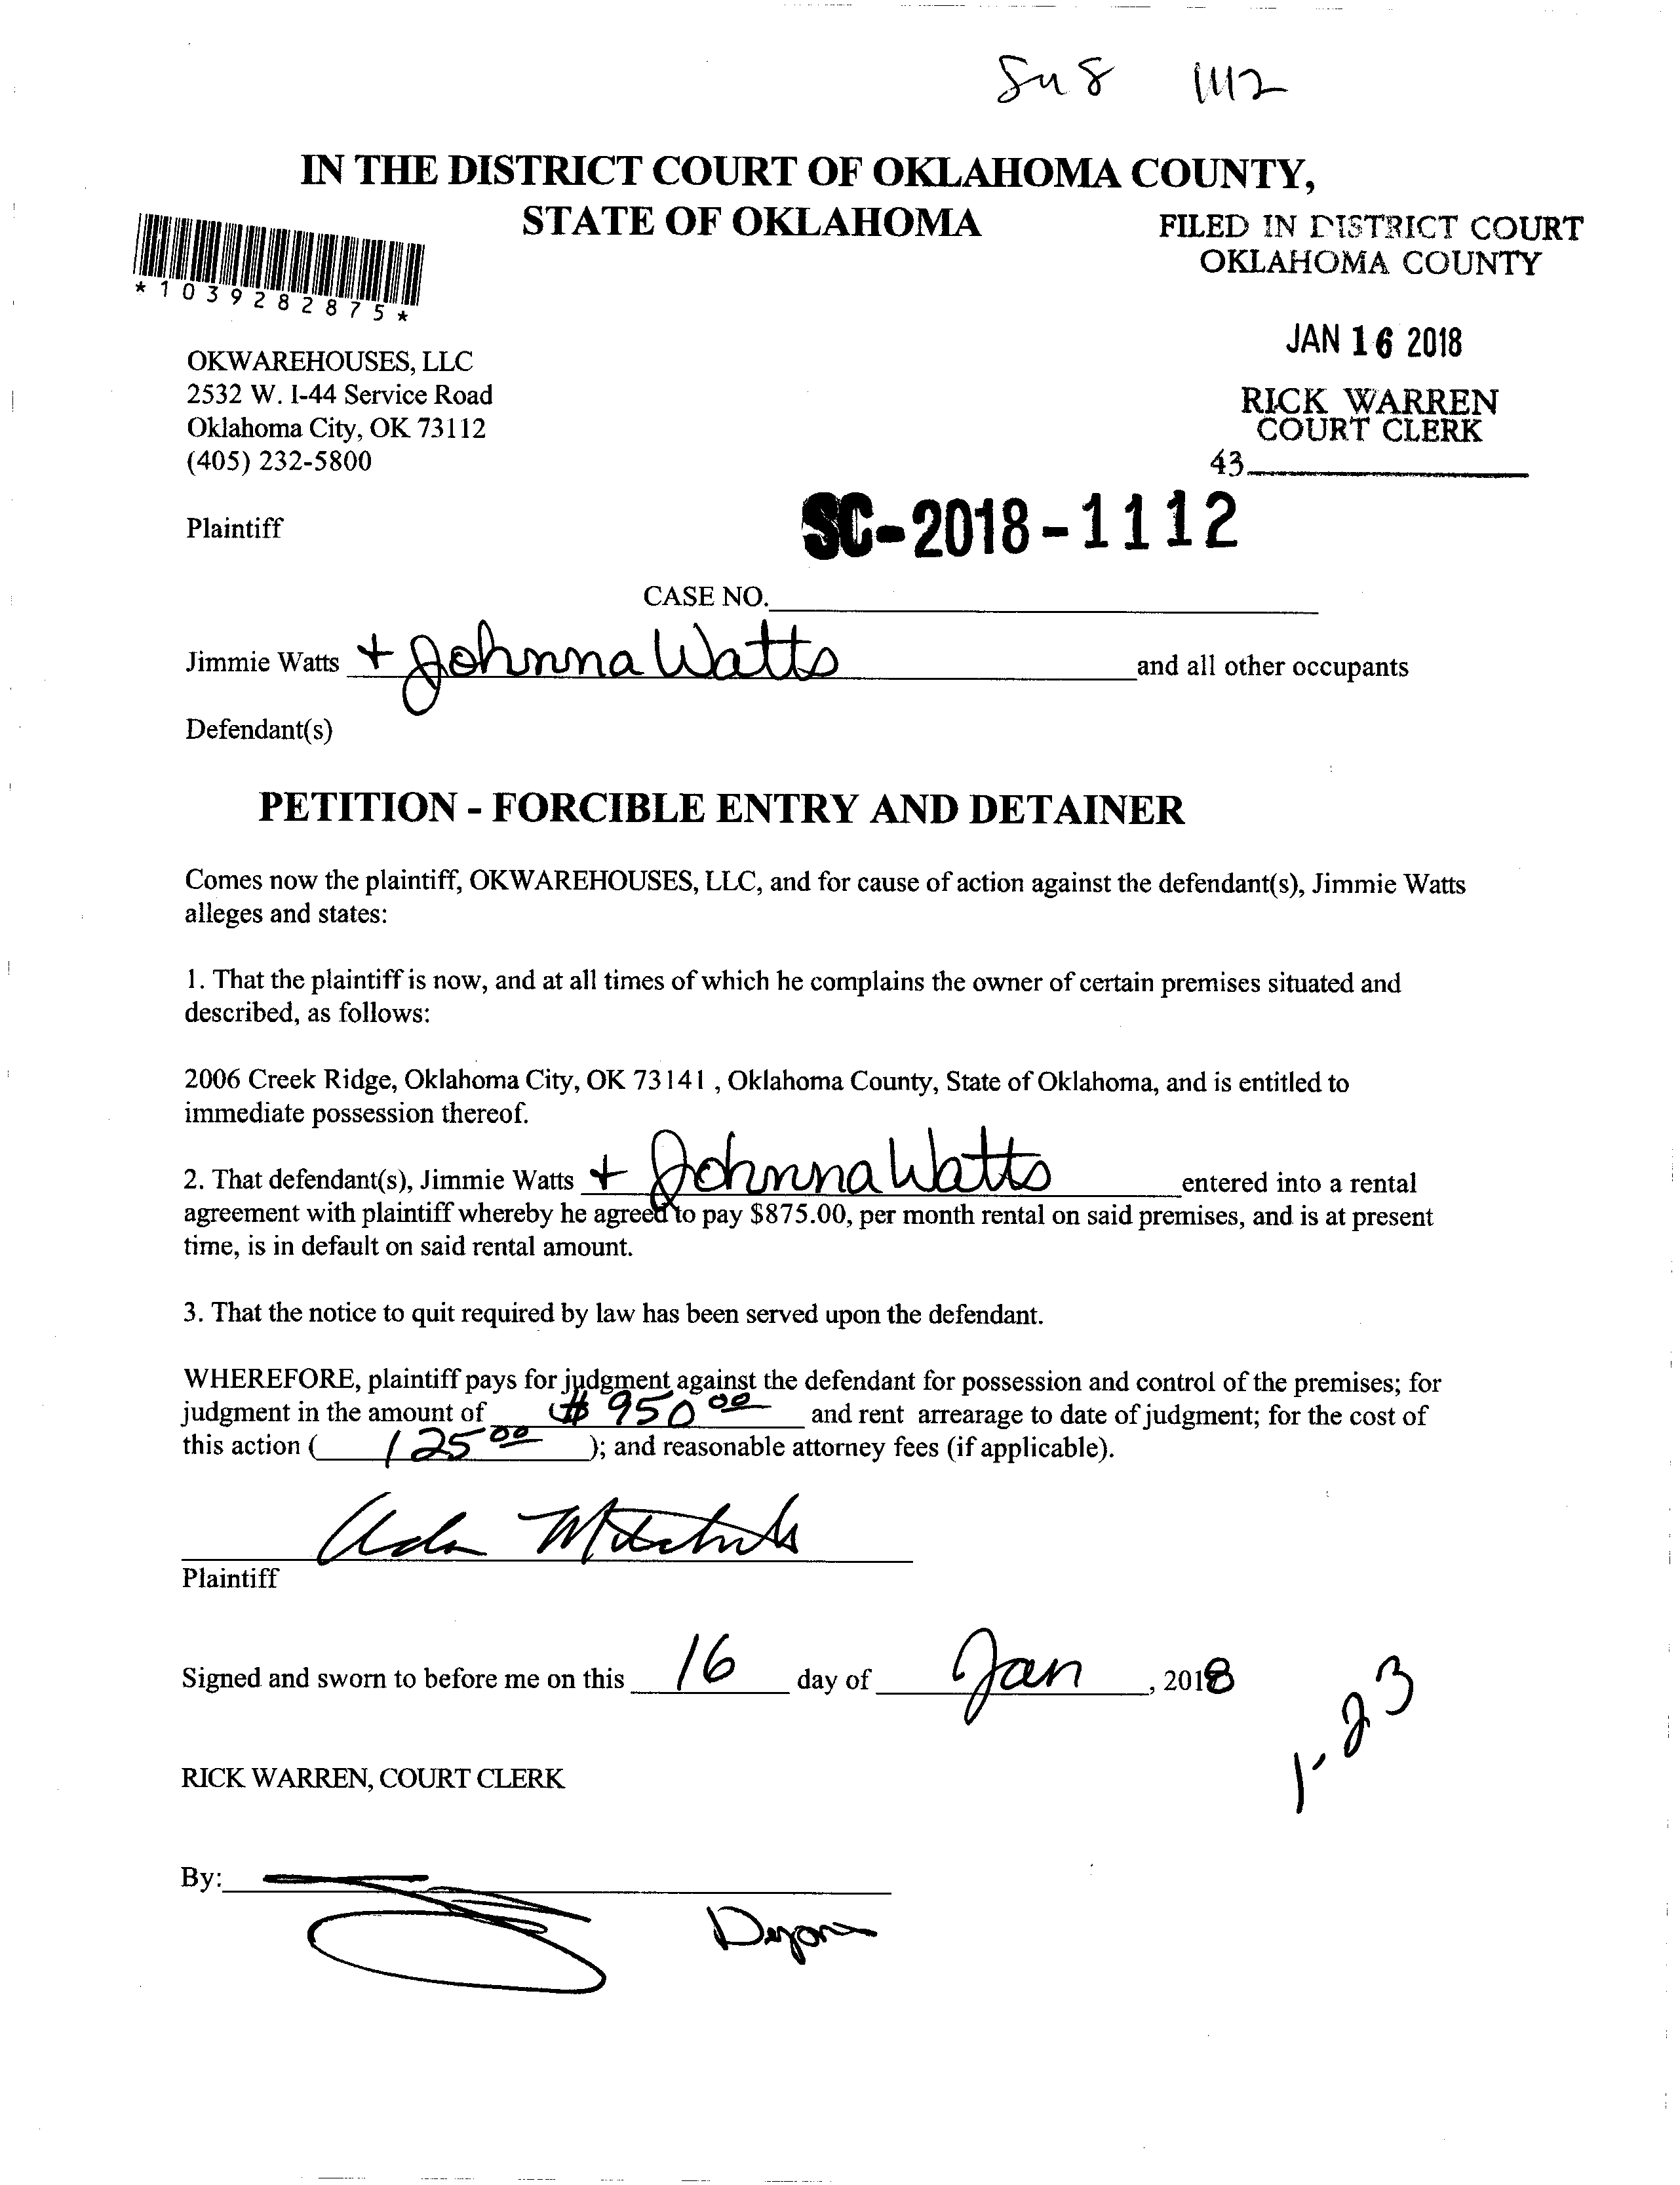 1112
IN THE DISTRICT COURT OF OKLAHOMA COUNTY,
STATE OF OKLAHOMA
FILED IN DISTRICT COURT
OKLAHOMA COUNTY
*1039282875*
JAN 16 2018
OKWAREHOUSES, LLC
2532 W. I-44 Service Road
Oklahoma City, OK 73112
(405) 232-5800
RICK WARREN
COURT CLERK
43
Plaintiff
SC-2018-1112
CASE NO.
Jimmie Watts + Johnna Watts and all other occupants
Defendant(s)
PETITION - FORCIBLE ENTRY AND DETAINER
Comes now the plaintiff, OKWAREHOUSES, LLC, and for cause of action against the defendant(s), Jimmie Watts
alleges and states:
1. That the plaintiff is now, and at all times of which he complains the owner of certain premises situated and
described, as follows:
2006 Creek Ridge, Oklahoma City, OK 73141 , Oklahoma County, State of Oklahoma, and is entitled to
immediate possession thereof.
2. That defendant(s), Jimmie Watts + Johnna Watts entered into a rental
agreement with plaintiff whereby he agreed to pay $875.00, per month rental on said premises, and is at present
time, is in default on said rental amount.
3. That the notice to quit required by law has been served upon the defendant.
WHEREFORE, plaintiff pays for judgment against the defendant for possession and control of the premises; for
judgment in the amount of $950 00 and rent arrearage to date of judgment; for the cost of
this action ( 125 00 ); and reasonable attorney fees (if applicable).
Plaintiff
Signed and sworn to before me on this 16 day of Jan, 2018
1-23
RICK WARREN, COURT CLERK
By: